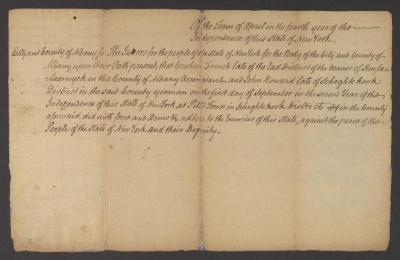 Of the Term of April in the fourth year of the
Independence of this State of New York.
City and County of Albany ss. The Jurors for the people of the State of New York for the Body of the City and County of
Albany upon their Oath present, that Gershom French late of the East District of the Manor of Rensse
laerwyck in the County of Albany accomptant and John Howard late of Schaghtekook
District in the said County yeoman on the first day of September in the second Year of the
Independence of this State of New York at Pitts Town in Schaghtekook District in the County
aforesaid did with force and Arms &c adhere to the Enemies of this State, against the peace of the
People of the State of New York and their Dignity.